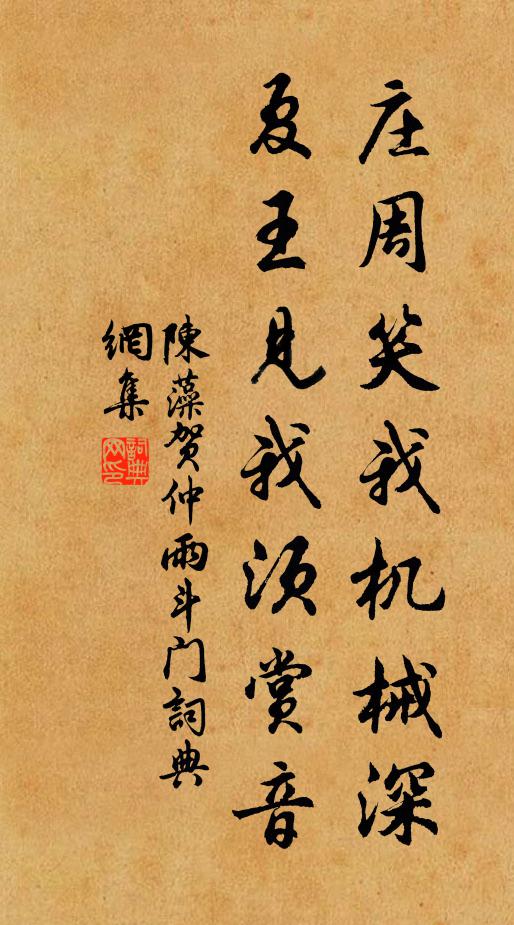 庄周笑我机械深
夏王见我须赏音
陳藻贺仲雨斗门詞典
網集
詞典网印